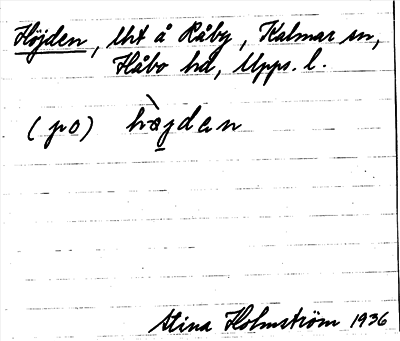 Höjden, Uht å Råby, Kalmar sn,
Håbo hd, Upps. l.
(po) hæ̀jdan
Stina Holmström 1936